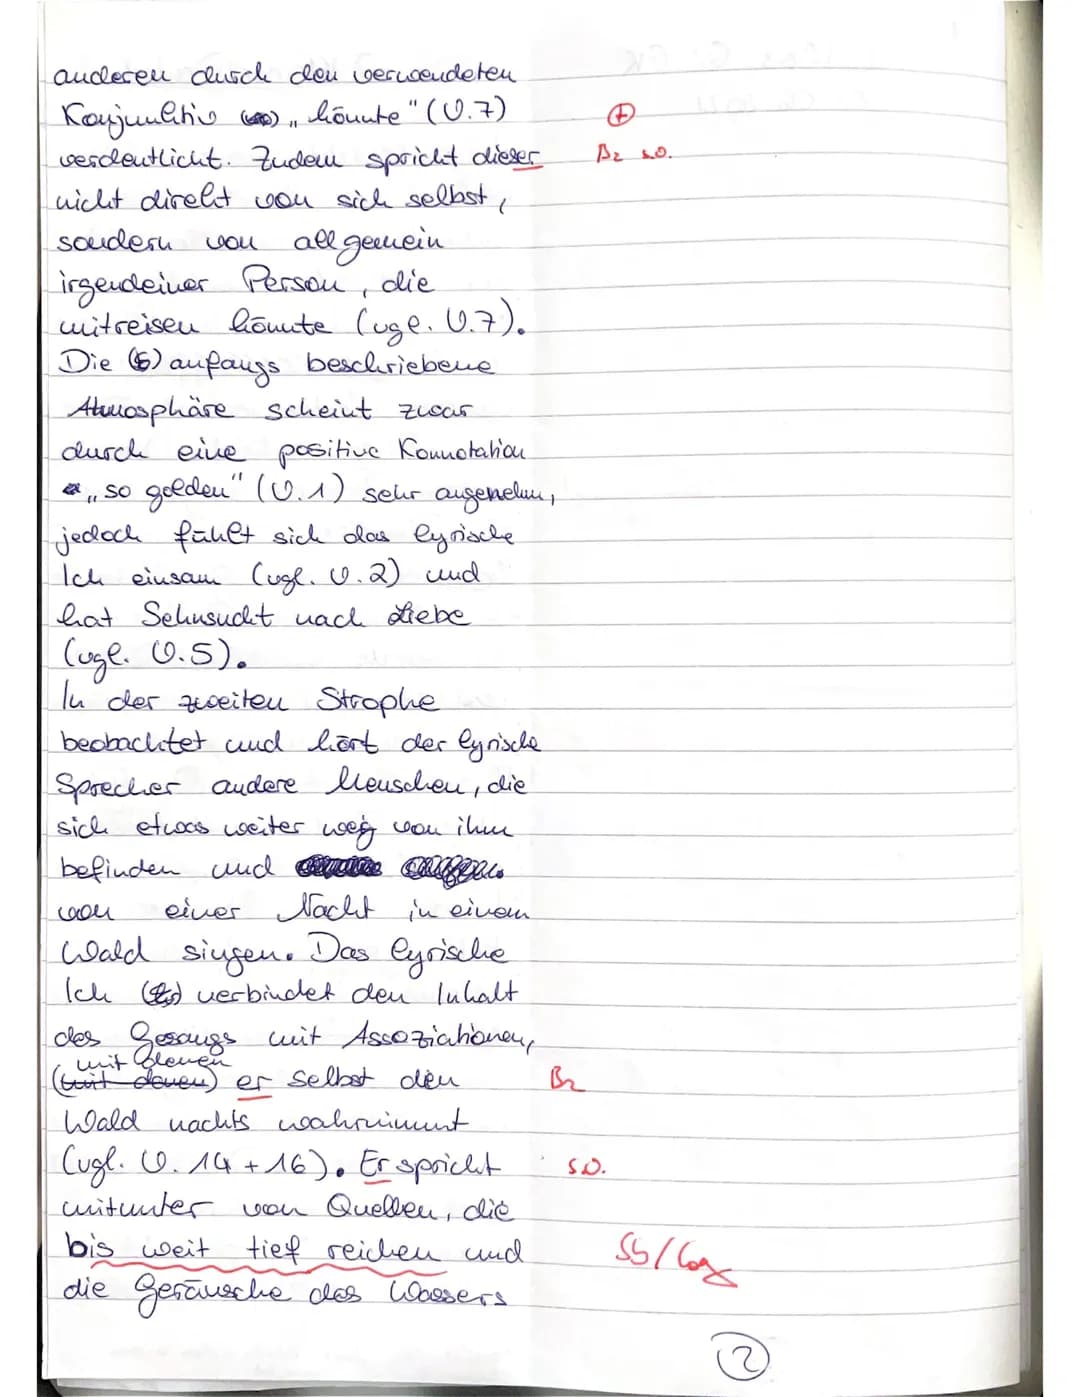 anderen durch den verwendeten
Konjunktiv „könnte" (V.7)
⊕
verdeutlicht. Zudem spricht dieser
Bz s.o.
nicht direkt von sich selbst,
sondern von allgemein
irgendeiner Person, die
mitreisen könnte (vgl. V.7).
Die anfangs beschriebene
Atmosphäre scheint zwar
durch eine positive Konnotation
„so golden" (V.1) sehr angenehm,
jedoch fühlt sich das lyrische
Ich einsam (vgl. V.2) und
hat Sehnsucht nach Liebe
(vgl. V.5).
In der zweiten Strophe
beobachtet und hört der lyrische
Sprecher andere Menschen, die
sich etwas weiter weg von ihm
befinden und
von einer Nacht in einem
Wald singen. Das lyrische
Ich verbindet den Inhalt
des Gesangs mit Assoziationen,
mit denen
(mit denen) er selbst den
Bz
Wald nachts wahrnimmt
(vgl. V. 14 + 16). Er spricht
s.o.
mitunter von Quellen, die
bis weit tief reichen und
Sb/Log
die Geräusche des Wassers
2